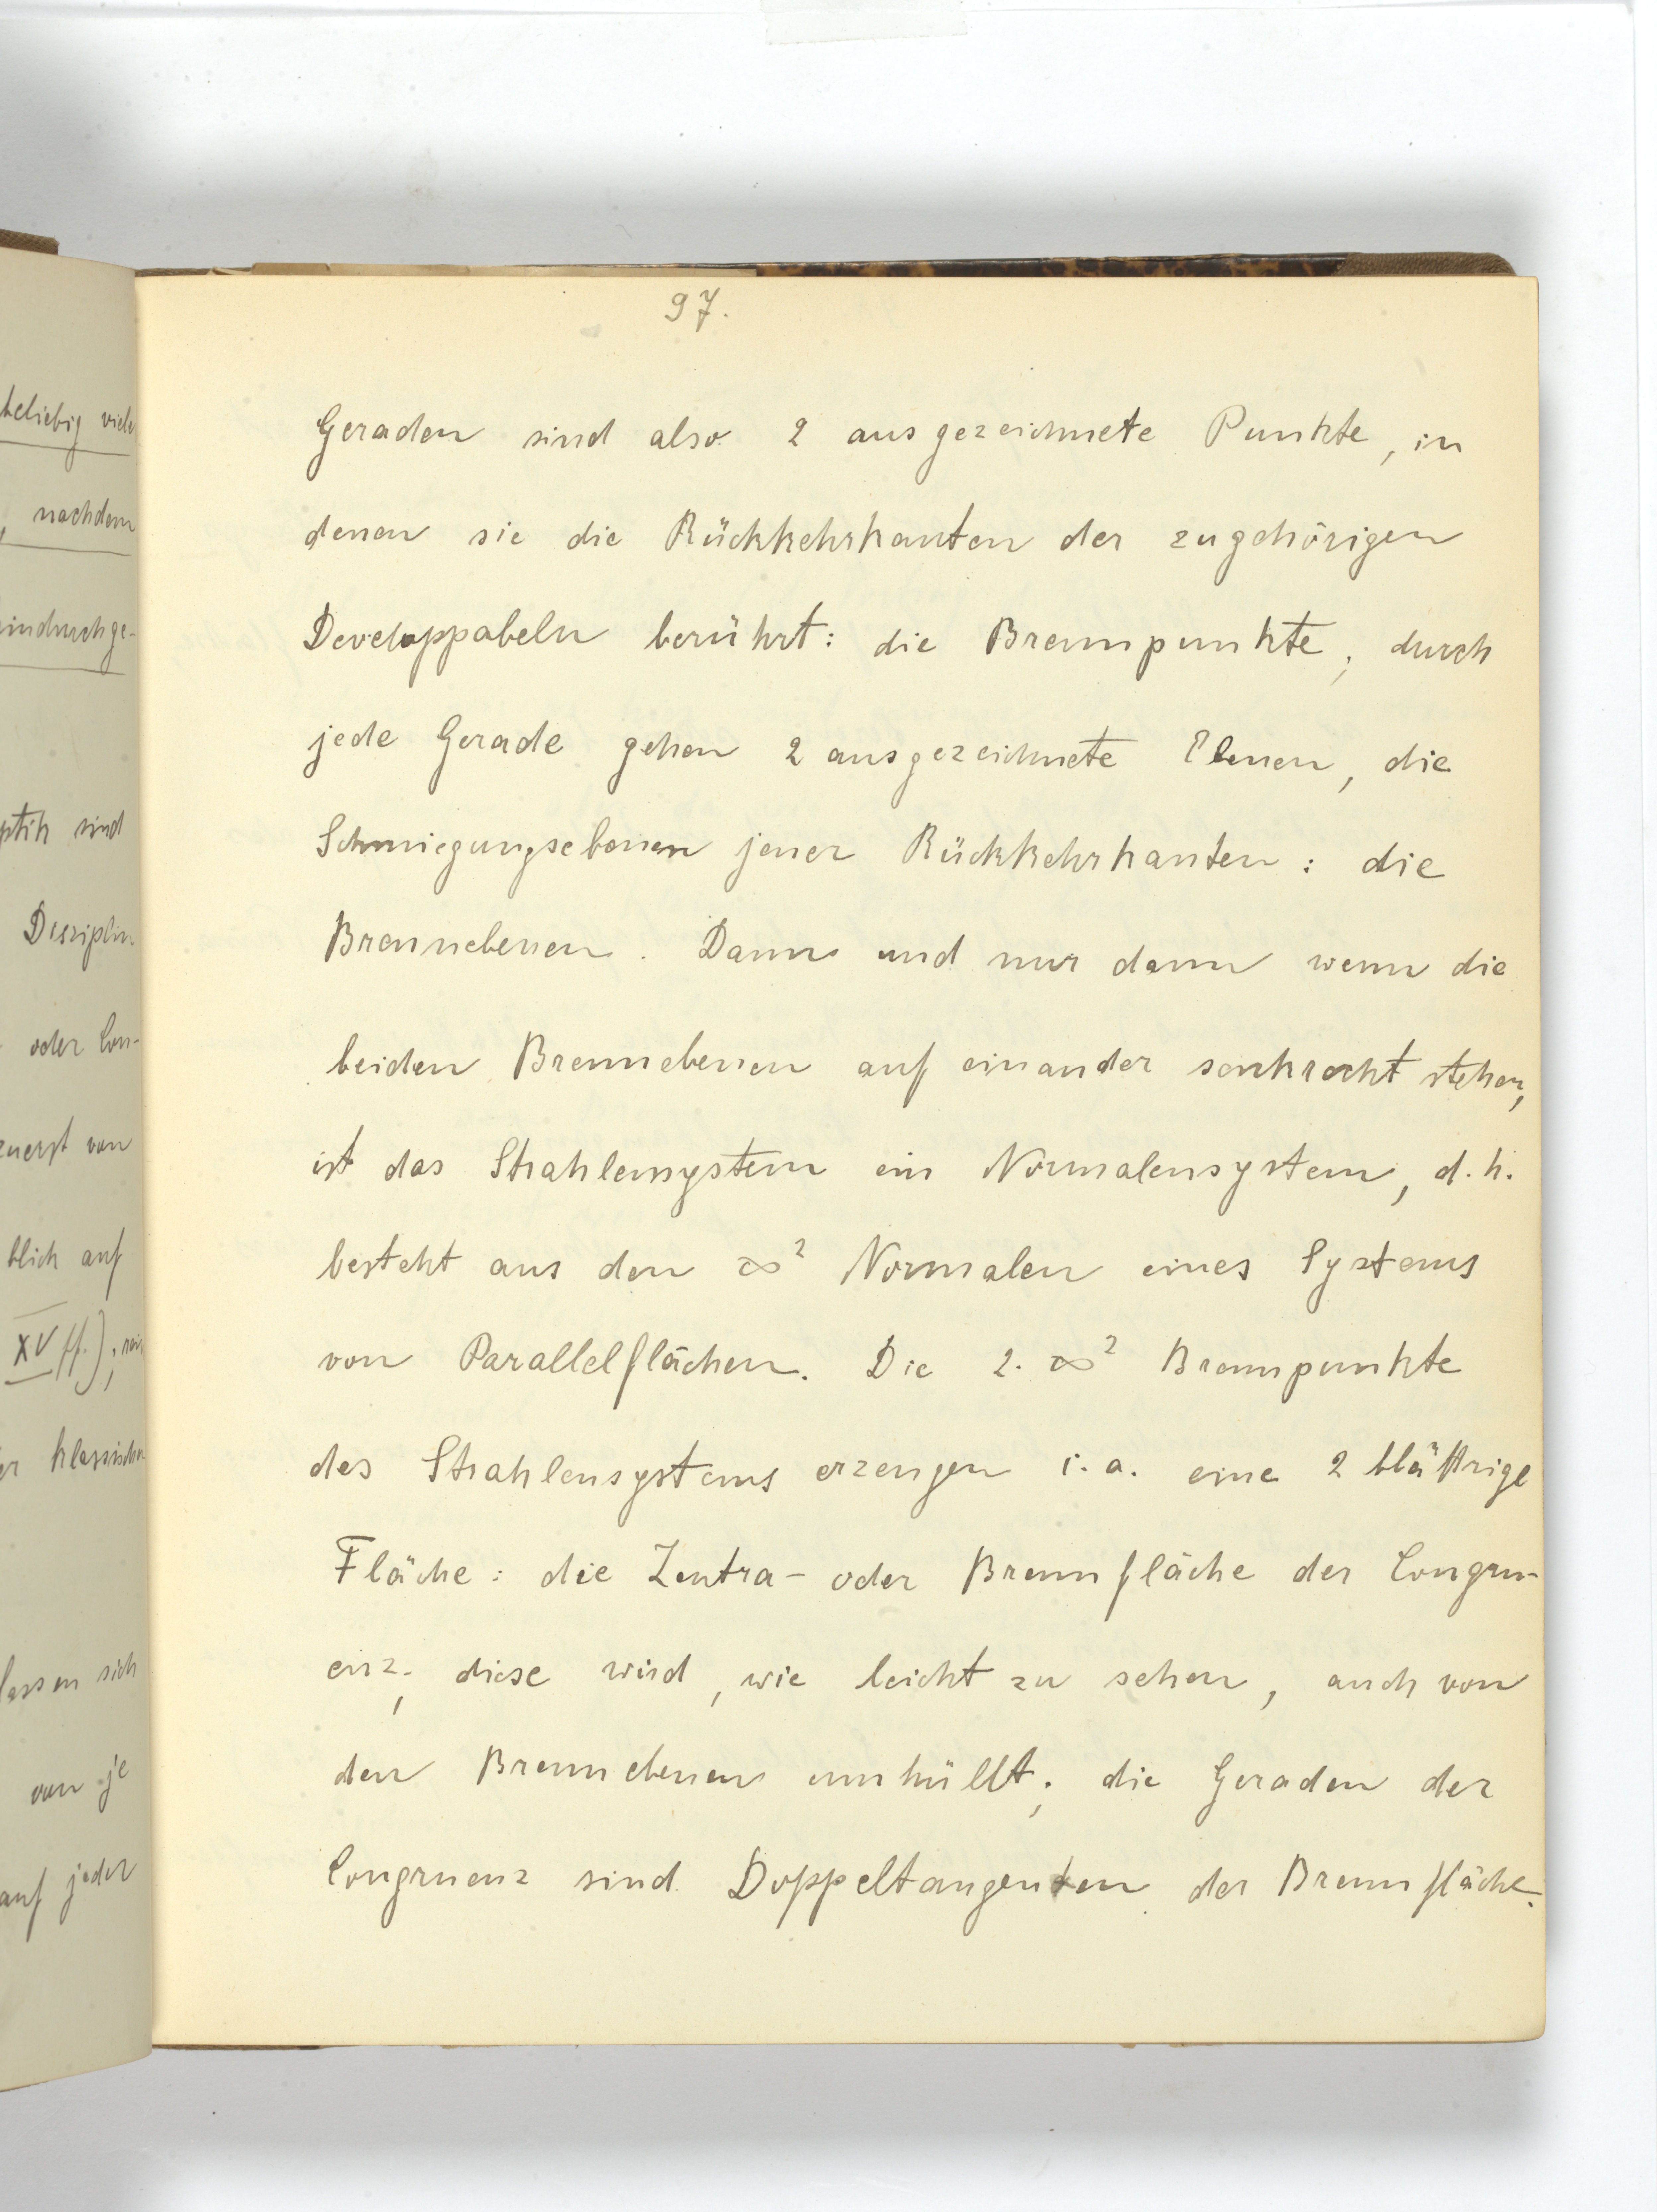 beliebig viele
, nachdem
hindurchge-
ptik sind
Disziplin
oder Con-
zuerst von
blich auf
XV ff.);
er klassischen
lassen sich
von je
auf jeder
97.
Geraden sind also 2 ausgezeichnete Punkte, in
denen sie die Rückkehrkanten der zugehörigen
Developpabeln berührt: die Brennpunkte; durch
jede Gerade gehen 2 ausgezeichnete Ebenen, die
Schmiegungsebenen jener Rückkehrkanten: die
Brennebenen. Dann und nur dann wenn die
beiden Brennebenen auf einander senkrecht stehen,
ist das Strahlensystem ein Normalensystem, d.h.
besteht aus den ∞² Normalen eines Systems
von Parallelflächen. Die 2.∞² Brennpunkte
des Strahlensystems erzeugen i.a. eine 2 blättrige
Fläche: die Zentra- oder Brennfläche der Congru-
enz; diese wird, wie leicht zu sehen, auch von
den Brennebenen umhüllt; die Geraden der
Congruenz sind Doppeltangenten der Brennfläche.